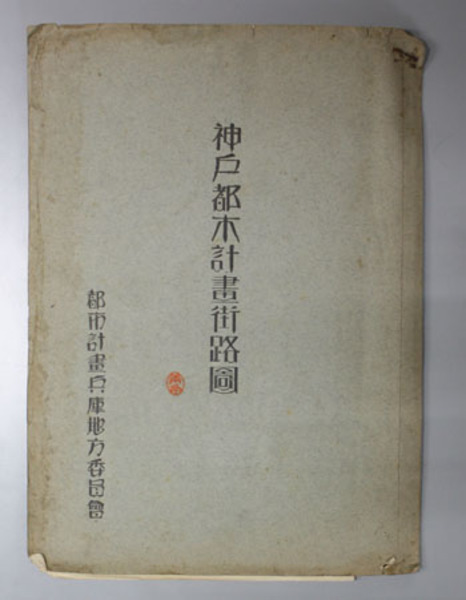 神戸都市計畫街路圖
都市計畫兵庫地方委員會